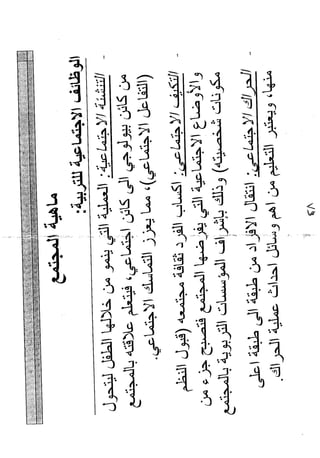 ماهية المجتمع
الوظائف الاجتماعية للتربية:
- التنشئة الاجتماعية: العملية التي ينمو من خلالها الطفل ليتحول
من كائن بيولوجي الى كائن اجتماعي، فيتعلم علاقته بالمجتمع
(التفاعل الاجتماعي)، مما يعزز التماسك الاجتماعي.
- التكيف الاجتماعي: اكساب الفرد ثقافة مجتمعه (قبول النظم
والأوضاع الاجتماعية التي يفرضها المجتمع فتصبح جزء من
مكونات شخصيته) وذلك بإشراف المؤسسات التربوية بالمجتمع
- الحراك الاجتماعي: انتقال الافراد من طبقة الى طبقة اعلى
منها، ويعتبر التعليم من اهم وسائل احداث عملية الحراك.
٤٨